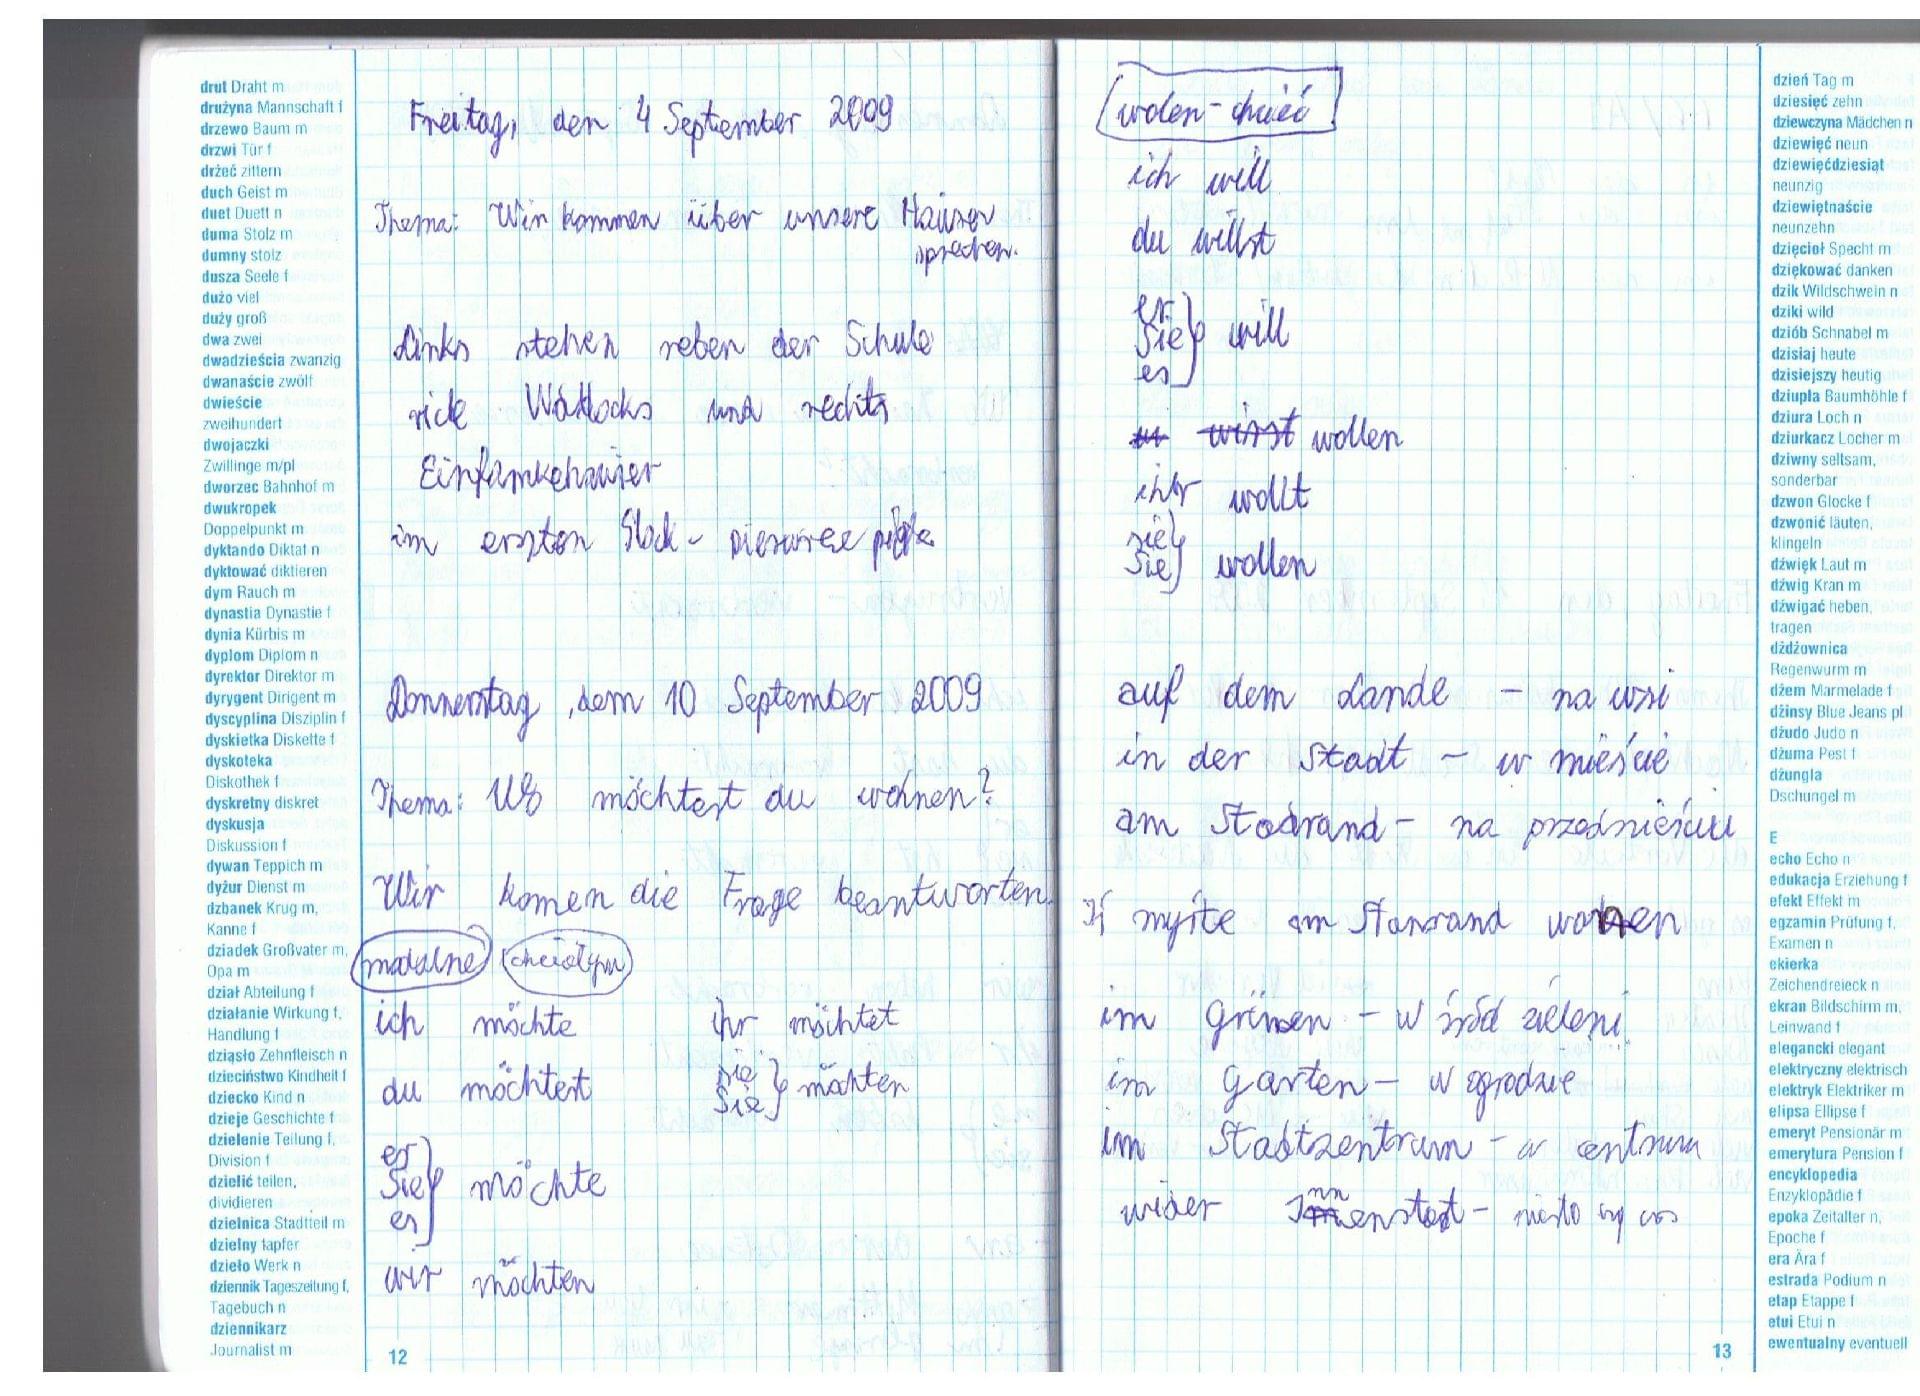 drut Draht m
drużyna Mannschaft f
drzewo Baum m
drzwi Tür f
drżeć zittern
duch Geist m
duet Duett n
duma Stolz m
dumny stolz
dusza Seele f
dużo viel
duży groß
dwa zwei
dwadzieścia zwanzig
dwanaście zwölf
dwieście
zweihundert
dwojaczki
Zwillinge m/pl
dworzec Bahnhof m
dwukropek
Doppelpunkt m
dyktando Diktat n
dyktować diktieren
dym Rauch m
dynastia Dynastie f
dynia Kürbis m
dyplom Diplom n
dyrektor Direktor m
dyrygent Dirigent m
dyscyplina Disziplin f
dyskietka Diskette f
dyskoteka
Diskothek f
dyskretny diskret
dyskusja
Diskussion f
dywan Teppich m
dyżur Dienst m
dzbanek Krug m,
Kanne f
dziadek Großvater m,
Opa m
dział Abteilung f
działanie Wirkung f,
Handlung f
dziąsło Zehnfleisch n
dzieciństwo Kindheit f
dziecko Kind n
dzieje Geschichte f
dzielenie Teilung f,
Division f
dzielić teilen,
dividieren
dzielnica Stadtteil m
dzielny tapfer
dzieło Werk n
dziennik Tageszeitung f,
Tagebuch n
dziennikarz
Journalist m
Freitag, den 4 September 2009
Thema: Wir kommen über unsere Häuser
sprechen.
Links stehen neben der Schule
und rechts
im erszten Stock -
Donnerstag, dem 10 September 2009
Thema: Wo möchtest du wohnen?
Wir komen die Frage beantworten.
modalne chciałbym
ich möchte ihr möchtet
du möchtest sie
Sie } möchten
er
Sie
es } möchte
wir möchten
12
wolen - chcieć
ich will
du willst
er
Sie
es } will
wollen
ihr wollt
sie
Sie } wollen
auf dem Lande - na wsi
in der Stadt - w mieście
am Stadrand - na przedmieściu
am wohnen
im Grünen - w śród zieleni
im Garten - w ogrodzie
im Stadtzentrum - w centrum
13
dzień Tag m
dziesięć zehn
dziewczyna Mädchen n
dziewięć neun
dziewięćdziesiąt
neunzig
dziewiętnaście
neunzehn
dzięcioł Specht m
dziękować danken
dzik Wildschwein n
dziki wild
dziób Schnabel m
dzisiaj heute
dzisiejszy heutig
dziupla Baumhöhle f
dziura Loch n
dziurkacz Locher m
dziwny seltsam,
sonderbar
dzwon Glocke f
dzwonić läuten,
klingeln
dźwięk Laut m
dźwig Kran m
dźwigać heben,
tragen
dżdżownica
Regenwurm m
dżem Marmelade f
dżinsy Blue Jeans pl
dżudo Judo n
dżuma Pest f
dżungla
Dschungel m
E
echo Echo n
edukacja Erziehung f
efekt Effekt m
egzamin Prüfung f,
Examen n
ekierka
Zeichendreieck n
ekran Bildschirm m,
Leinwand f
elegancki elegant
elektryczny elektrisch
elektryk Elektriker m
elipsa Ellipse f
emeryt Pensionär m
emerytura Pension f
encyklopedia
Enzyklopädie f
epoka Zeitalter n,
Epoche f
era Ära f
estrada Podium n
etap Etappe f
etui Etui n
ewentualny eventuell